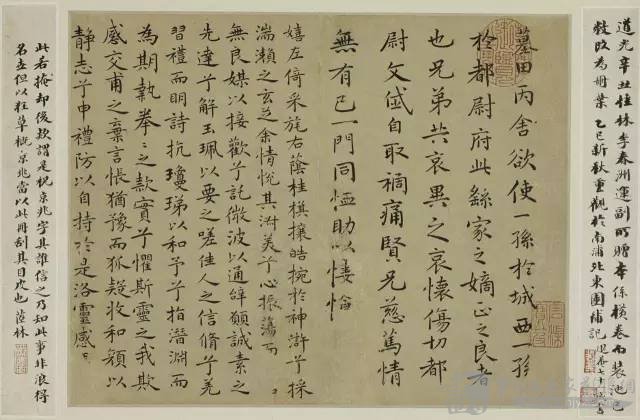 道光辛丑桂林李春洲運副所贈本係橫卷而裝池已
敝改為冊葉 乙巳新秋重觀於南浦北東園補記
墓田丙舍欲使一孫於城西一孫
於都尉府此繇家之嫡正之良者
也兄弟共哀異之哀懷傷切都
尉文岱自取禍痛賢兄慈篤情
無有已一門同恤助以悽愴
嬉左倚采旄右蔭桂棋攘皓捥於神滸兮採
湍瀨之玄芝余情悅其淑美兮心振蕩而
無良媒以接歡兮託微波以通辭願誠素之
先達兮解玉珮以要之嗟佳人之信脩兮羌
習禮而明詩抗瓊珶以和予兮指潛淵而
為期執拳〻之款實兮懼斯靈之我欺
感交甫之棄言悵猶豫而狐疑收和顏以
靜志兮申禮防以自持於是洛靈感〻
此若掩却後款謂是祝京兆字其誰信之乃知此事非浪得
名者但以狂草概京兆當以此冊刮其目皮也 茝林